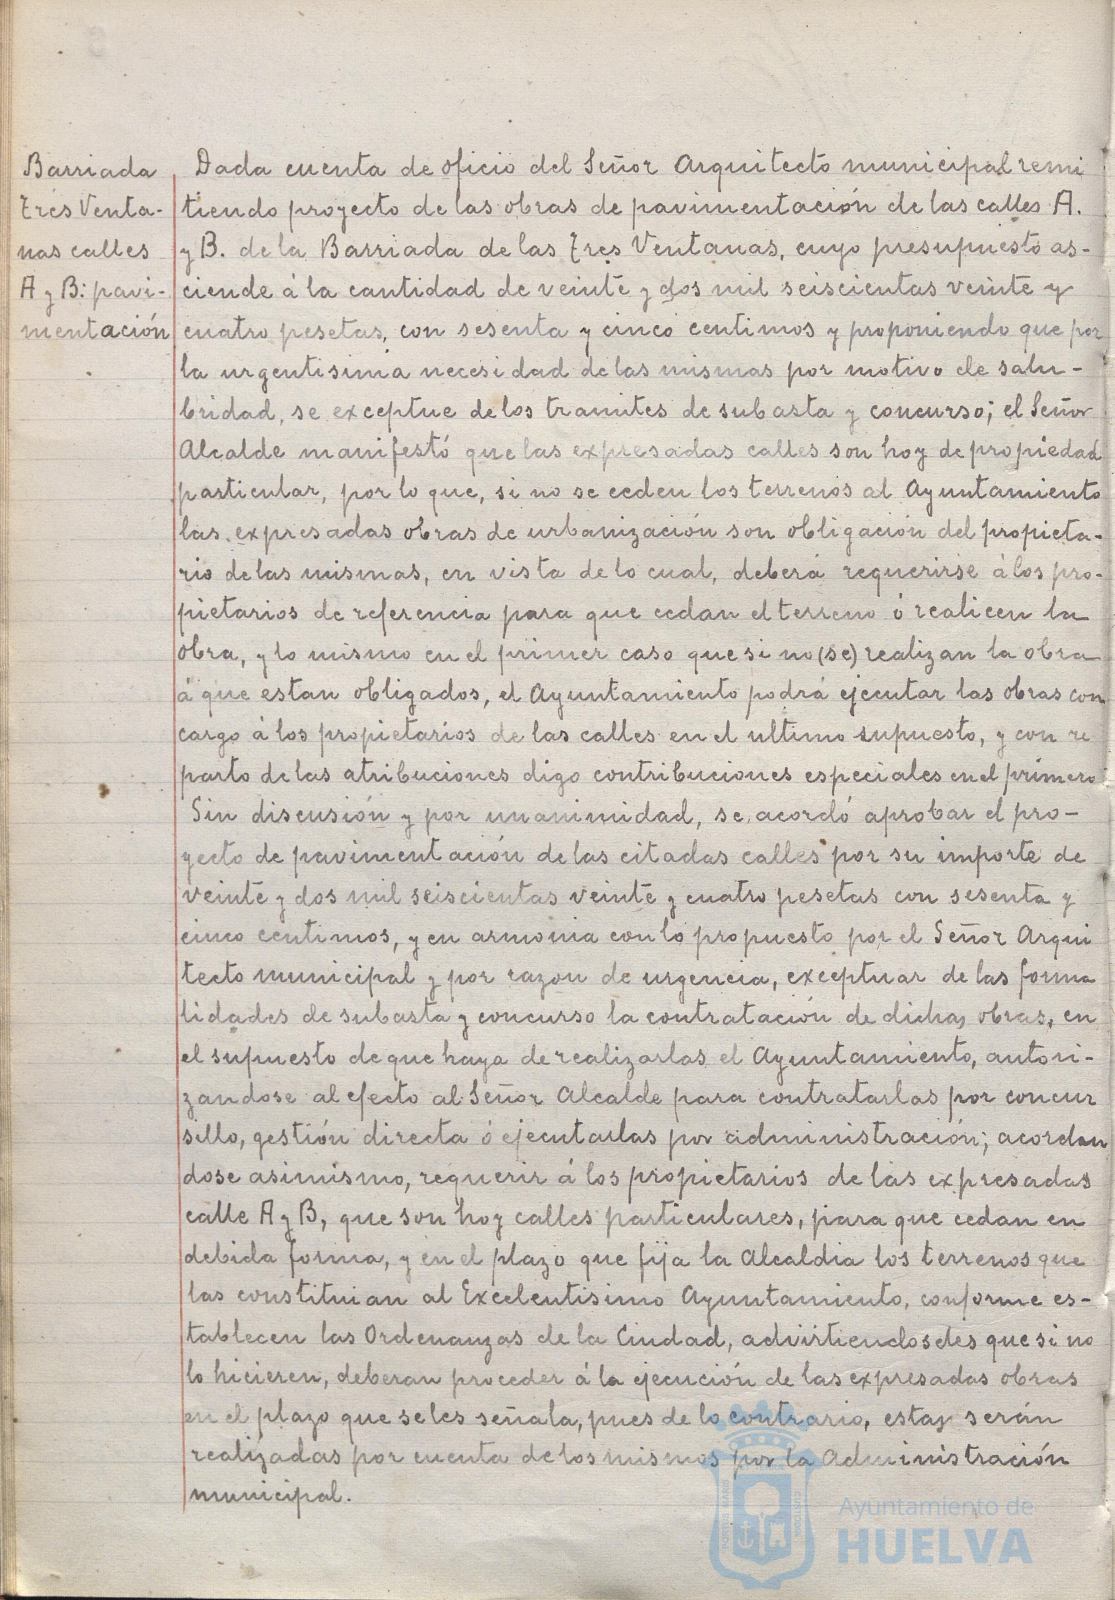 Barriada
Tres Venta-
nas calles
A y B: pavi-
mentación
Dada cuenta de oficio del Señor Arquitecto municipal remi
tiendo proyecto de las obras de pavimentación de las calles A.
y B. de la Barriada de las Tres Ventanas, cuyo presupuesto as-
ciende á la cantidad de veinte y dos mil seiscientas veinte y
cuatro pesetas, con sesenta y cinco centimos y proponiendo que por
la urgentisima necesidad de las mismas por motivo de salu-
bridad, se exceptue de los tramites de subasta y concurso; el Señor
Alcalde manifestó que las expresadas calles son hoy de propiedad
particular, por lo que, si no se ceden los terrenos al Ayuntamiento
las expresadas obras de urbanización son obligación del propieta-
rio de las mismas, en vista de lo cual, deberá requerirse á los pro-
pietarios de referencia para que cedan el terreno ó realicen la
obra, y lo mismo en el primer caso que si no (se) realizan la obra
á que estan obligados, el Ayuntamiento podrá ejecutar las obras con
cargo á los propietarios de las calles en el ultimo supuesto, y con re
parto de las atribuciones digo contribuciones especiales en el primero
Sin discusión y por unanimidad, se acordó aprobar el pro-
yecto de pavimentación de las citadas calles por su importe de
veinte y dos mil seiscientas veinte y cuatro pesetas con sesenta y
cinco centimos, y en armonia con lo propuesto por el Señor Arqui
tecto municipal y por razon de urgencia, exceptuar de las forma
lidades de subasta y concurso la contratación de dichas obras, en
el supuesto de que haya de realizarlas el Ayuntamiento, autori-
zandose al efecto al Señor Alcalde para contratarlas por concur
sillo, gestión directa ó ejecutarlas por administración; acordan
dose asimismo, requerir á los propietarios de las expresadas
calle A y B, que son hoy calles particulares, para que cedan en
debida forma, y en el plazo que fija la Alcaldia los terrenos que
las constituian al Excelentisimo Ayuntamiento, conforme es-
tablecen las Ordenanzas de la Ciudad, advirtiendoseles que si no
lo hicieren, deberan proceder á la ejecución de las expresadas obras
en el plazo que se les señala, pues de lo contrario, estas serán
realizadas por cuenta de los mismos por la Administración
municipal.
Ayuntamiento de
HUELVA